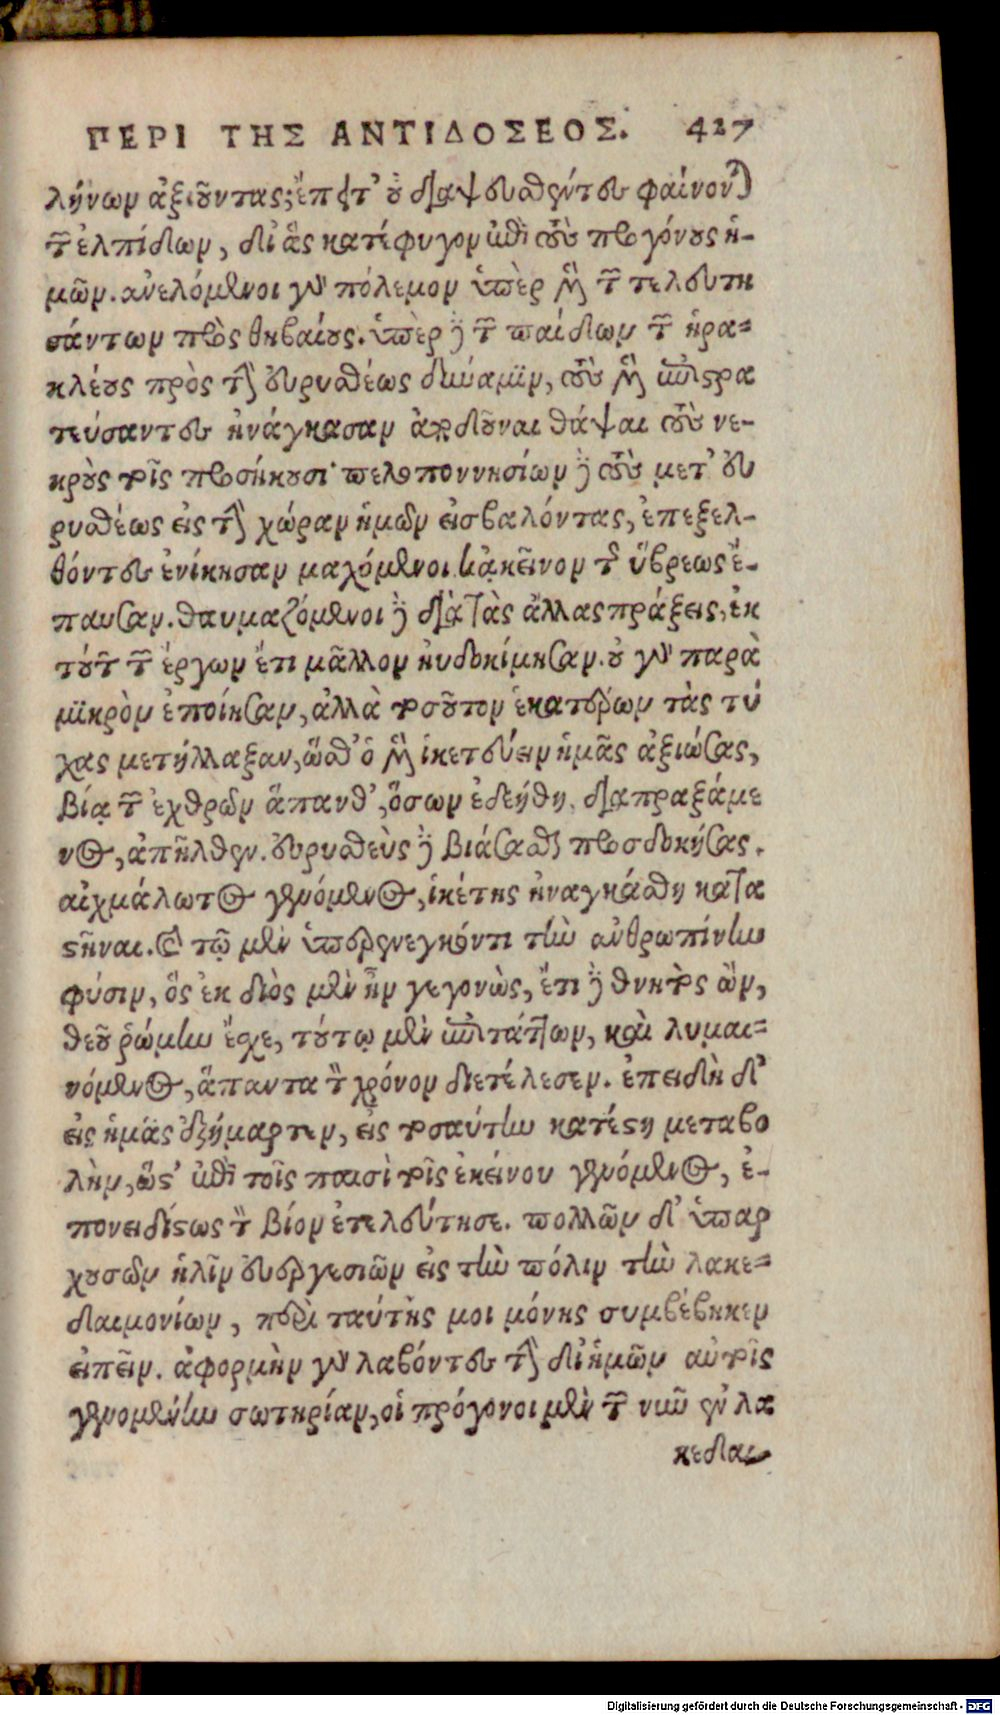 ΠΕΡΙ ΤΗΣ ΑΝΤΙΔΟΣΕΟΣ. 427
λήνων ἀξιοῦντας; ἔπειτ' οὐ διαψευσθέντες φαίνονται
τῶν ἐλπίδων, δι' ἃς κατέφυγον ἐπὶ τοὺς προγόνους ἡ-
μῶν. ἀνελόμενοι γὰρ πόλεμον ὑπὲρ μὲν τῶν τελευτη
σάντων πρὸς θηβαίους. ὑπὲρ δὲ τῶν παίδων τῶν ἡρα-
κλέους πρὸς τὴν εὐρυσθέως δύναμιν, τοὺς μὲν ἐπιστρα
τεύσαντες ἠνάγκασαν ἀποδοῦναι θάψαι τοὺς νε-
κροὺς τοῖς προσήκουσι· πελοποννησίων δὲ τοὺς μετ' εὐ
ρυσθέως εἰς τὴν χώραν ἡμῶν εἰσβαλόντας, ἐπεξελ-
θόντες ἐνίκησαν μαχόμενοι κἀκεῖνον τῆς ὕβρεως ἔ-
παυσαν. θαυμαζόμενοι δὲ διὰ τὰς ἄλλας πράξεις, ἐκ
τούτων τῶν ἔργων ἔτι μᾶλλον ηὐδοκίμησαν. οὐ γὰρ παρὰ
μικρὸν ἐποίησαν, ἀλλὰ τοσοῦτον ἑκατέρων τὰς τύ
χας μετήλλαξαν, ὥσθ' ὁ μὲν ἱκετεύειν ἡμᾶς ἀξιώσας,
βίᾳ τῶν ἐχθρῶν ἅπανθ', ὅσων ἐδεήθη, διαπραξάμε
νος, ἀπῆλθεν. εὐρυσθεὺς δὲ βιάσασθαι προσδοκήσας.
αἰχμάλωτος γενόμενος, ἱκέτης ἠναγκάσθη κατα
στῆναι. καὶ τῷ μὲν ὑπερενεγκόντι τὴν ἀνθρωπίνην
φύσιν, ὃς ἐκ διὸς μὲν ἦν γεγονὼς, ἔτι δὲ θνητὸς ὢν,
θεοῦ ῥώμην ἔσχε, τούτῳ μὲν ἐπιτάττων, καὶ λυμαι-
νόμενος, ἅπαντα τὸν χρόνον διετέλεσεν. ἐπειδὴ δ'
εἰς ἡμᾶς ἐξήμαρτεν, εἰς τοσαύτην κατέστη μεταβο
λὴν, ὥστ' ἐπὶ τοῖς παισὶ τοῖς ἐκείνου γενόμενος, ἐ-
πονειδίστως τὸν βίον ἐτελεύτησε. πολλῶν δ' ὑπαρ
χουσῶν ἡμῖν εὐεργεσιῶν εἰς τὴν πόλιν τὴν λακε-
δαιμονίων, περὶ ταύτης μοι μόνης συμβέβηκεν
εἰπεῖν. ἀφορμὴν γὰρ λαβόντες τὴν δι' ἡμῶν αὐτοῖς
γενομένην σωτηρίαν, οἱ πρόγονοι μὲν τῶν νῦν ἐν λα
κεδαι
Digitalisierung gefördert durch die Deutsche Forschungsgemeinschaft - DFG